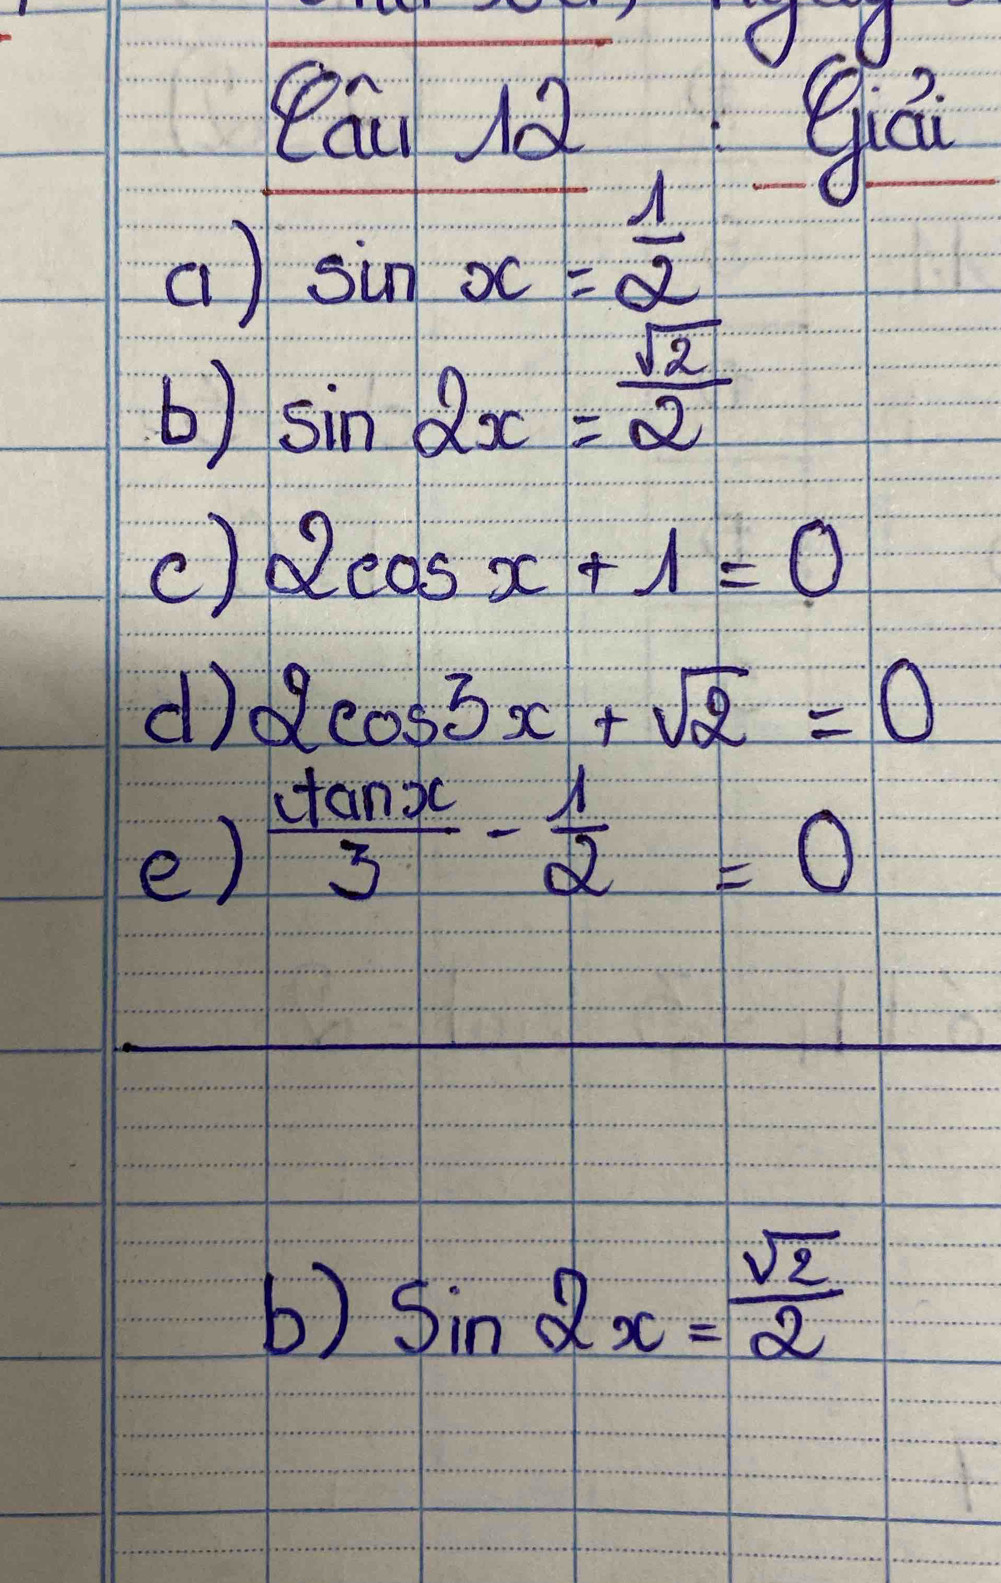 Câu 12 : Giải
a) sin x = 1/2
b) sin 2x = √2/2
c) 2cos x + 1 = 0
d) 2cos3x + √2 = 0
e) tanx/3 - 1/2 = 0
b) Sin 2x = √2/2